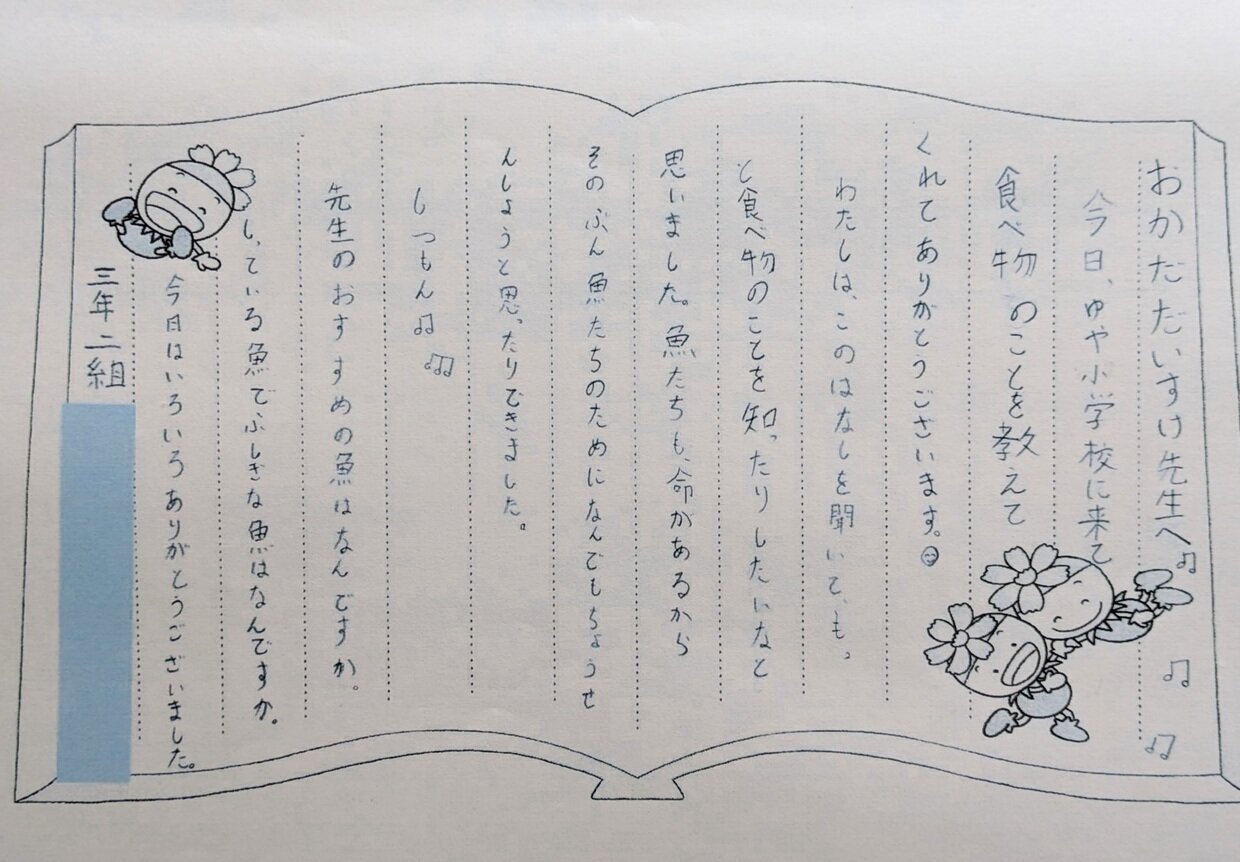 おかだだいすけ先生へ♪
今日、ゆや小学校に来て
食べ物のことを教えて
くれてありがとうございます。☺
わたしは、このはなしを聞いて、もっ
と食べ物のことを知ったりしたいなと
思いました。魚たちも、命があるから
そのぶん魚たちのためになんでもちょうせ
んしようと思ったりできました。
しつもん♫
先生のおすすめの魚はなんですか。
し、ている魚でふしぎな魚はなんですか。
今日はいろいろありがとうございました。
三年二組